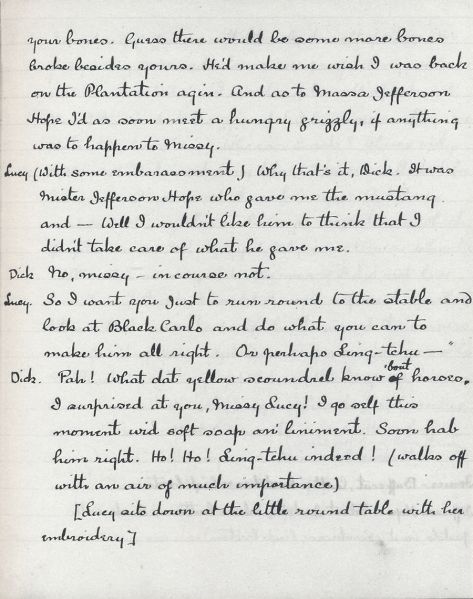 your bones. Guess there would be some more bones
broke besides yours. He'd make me wish I was back
on the Plantation agin. And as to Massa Jefferson
Hope I'd as soon meet a hungry grizzly, if anything
was to happen to Missy.
Lucy (With some embarassment) Why that's it, Dick. It was
Mister Jefferson Hope who gave me the mustang
and — Well I wouldn't like him to think that I
didn't take care of what he gave me.
Dick No, missy – in course not.
Lucy. So I want you just to run round to the stable and
look at Black Carlo and do what you can to
make him all right. Or perhaps Ling-tchu —"
Dick. Pah! What dat yellow scoundrel know 'bout of horses.
I surprised at you, Missy Lucy! I go self this
moment wid soft soap an' liniment. Soon hab
him right. Ho! Ho! Ling-tchu indeed! (walks off
with an air of much importance)
[Lucy sits down at the little round table with her
embroidery]